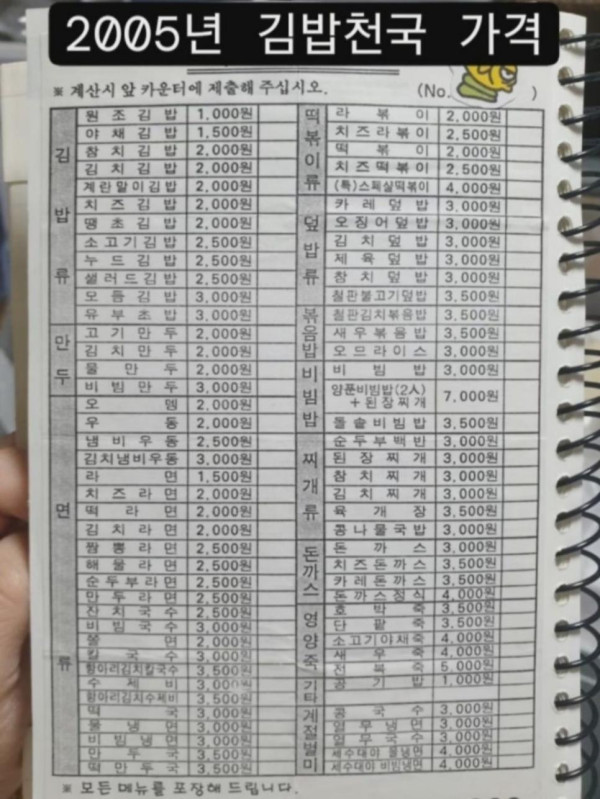 2005년 김밥천국 가격
※ 계산시 앞 카운터에 제출해 주십시오. (No. )
김밥류
원조김밥 1,000원
야채김밥 1,500원
참치김밥 2,000원
김치김밥 2,000원
계란말이김밥 2,000원
치즈김밥 2,000원
땡초김밥 2,000원
소고기김밥 2,500원
누드김밥 2,500원
샐러드김밥 2,500원
모듬김밥 3,000원
유부초밥 3,000원
만두
고기만두 2,000원
김치만두 2,000원
물만두 2,000원
비빔만두 3,000원
면류
오뎅 2,000원
우동 2,000원
냄비우동 2,500원
김치냄비우동 3,000원
라면 1,500원
치즈라면 2,000원
떡라면 2,000원
김치라면 2,000원
짬뽕라면 2,500원
해물라면 2,500원
순두부라면 2,500원
만두라면 2,500원
잔치국수 2,500원
비빔국수 3,000원
쫄면 2,000원
칼국수 3,000원
항아리김치칼국수 3,500원
수제비 3,000원
항아리김치수제비 3,500원
떡국 3,000원
물냉면 3,000원
비빔냉면 3,000원
만두국 3,500원
떡만두국 3,500원
떡볶이류
라볶이 2,000원
치즈라볶이 2,500원
떡볶이 2,000원
치즈떡볶이 2,500원
(특)스페살떡볶이 4,000원
덮밥류
카레덮밥 3,000원
오징어덮밥 3,000원
김치덮밥 3,000원
제육덮밥 3,000원
참치덮밥 3,000원
철판불고기덮밥 3,500원
볶음밥
철판김치볶음밥 3,500원
새우볶음밥 3,500원
오므라이스 3,000원
비빔밥
비빔밥 3,000원
양푼비빔밥(2人)
+된장찌개 7,000원
돌솥비빔밥 3,500원
찌개류
순두부백반 3,000원
된장찌개 3,000원
참치찌개 3,000원
김치찌개 3,000원
육개장 3,500원
콩나물국밥 3,000원
돈까스
돈까스 3,000원
치즈돈까스 3,500원
카레돈까스 3,500원
돈까스정식 4,000원
영양죽
호박죽 3,500원
단팥죽 3,500원
소고기야채죽 4,000원
새우죽 4,000원
전복죽 5,000원
기타
공기밥 1,000원
계절별미
콩국수 3,000원
열무냉면 3,000원
열무국수 3,000원
세수대야 물냉면 4,000원
세수대야 비빔냉면 4,000원
※ 모든 메뉴를 포장해 드립니다.